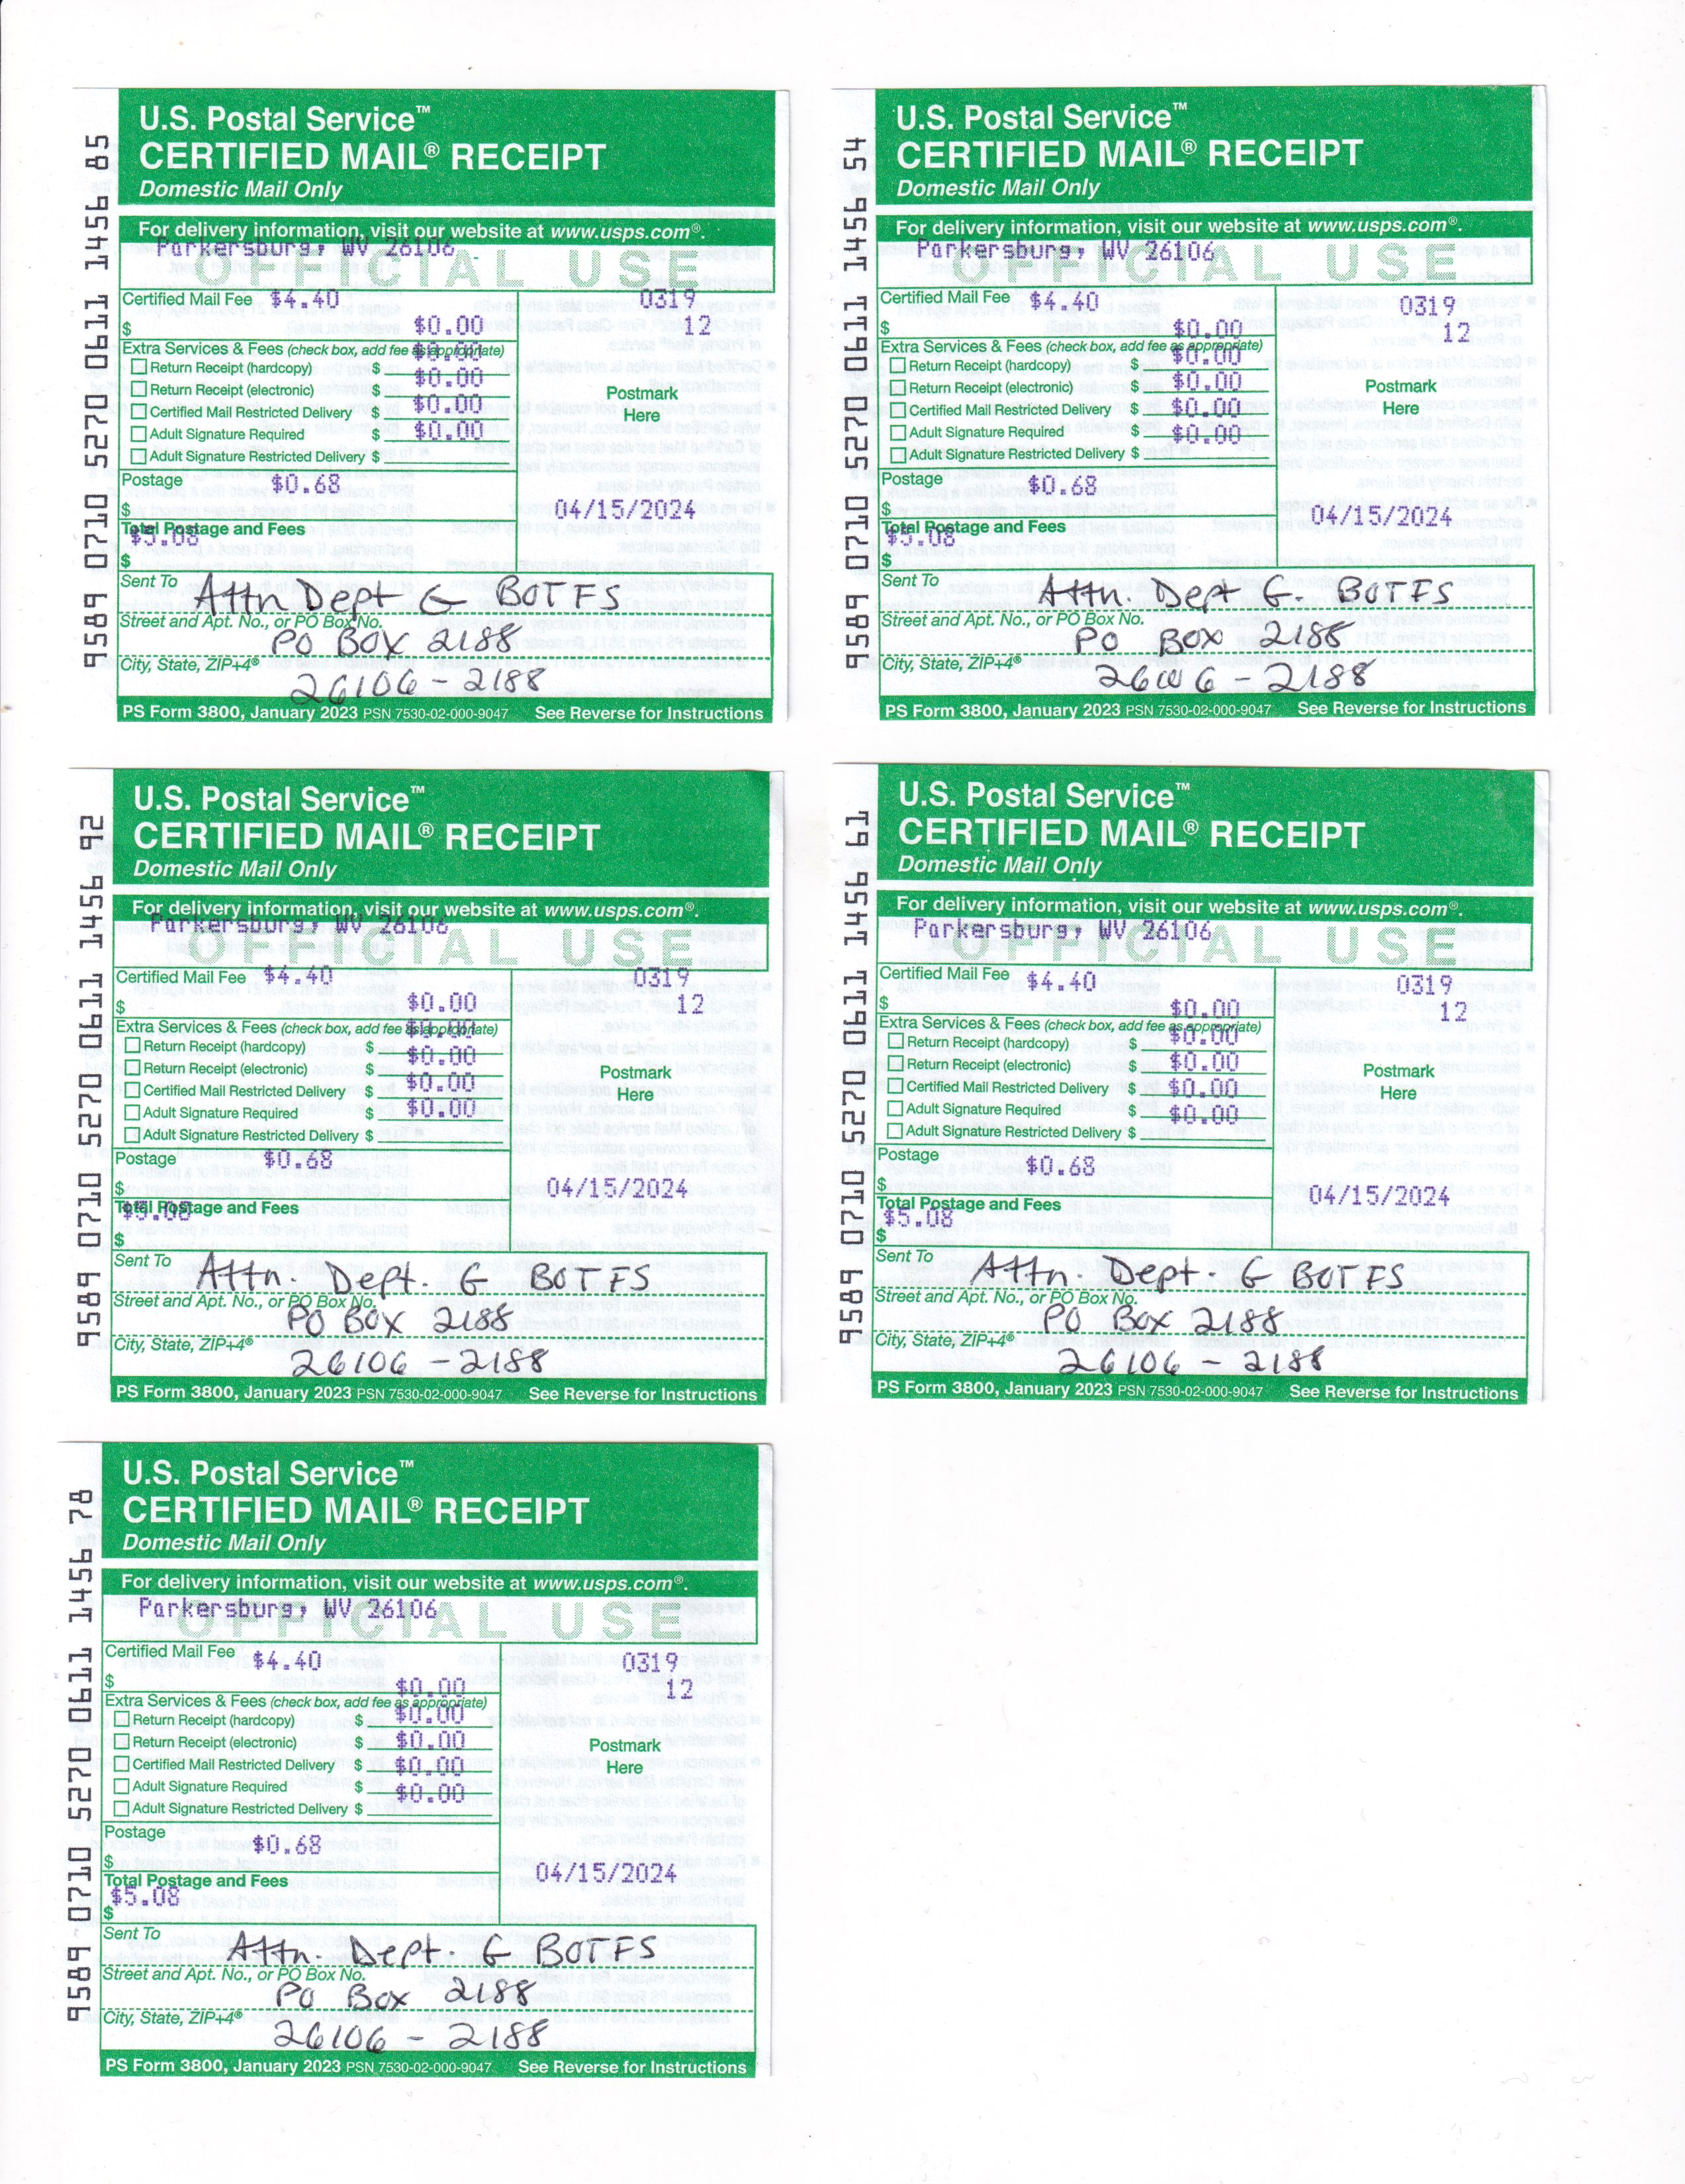 9589 0710 5270 0611 1456 85
U.S. Postal Service™
CERTIFIED MAIL® RECEIPT
Domestic Mail Only
For delivery information, visit our website at www.usps.com®.
Parkersburg, WV 26106
OFFICIAL USE
Certified Mail Fee $4.40
$
$0.00
0319
12
Extra Services & Fees (check box, add fee as appropriate)
$0.00
Return Receipt (hardcopy) $
Return Receipt (electronic) $ $0.00
Certified Mail Restricted Delivery $ $0.00
Adult Signature Required $ $0.00
Adult Signature Restricted Delivery $
Postmark
Here
Postage $0.68
04/15/2024
Total Postage and Fees
$5.08
$
Sent To Attn Dept G BOTFS
Street and Apt. No., or PO Box No. PO BOX 2188
City, State, ZIP+4® 26106-2188
PS Form 3800, January 2023 PSN 7530-02-000-9047 See Reverse for Instructions
9589 0710 5270 0611 1456 54
U.S. Postal Service™
CERTIFIED MAIL® RECEIPT
Domestic Mail Only
For delivery information, visit our website at www.usps.com®.
Parkersburg, WV 26106
OFFICIAL USE
Certified Mail Fee $4.40
$
$0.00
0319
12
Extra Services & Fees (check box, add fee as appropriate)
Return Receipt (hardcopy) $ $0.00
Return Receipt (electronic) $ $0.00
Certified Mail Restricted Delivery $ $0.00
Adult Signature Required $ $0.00
Adult Signature Restricted Delivery $
Postmark
Here
Postage $0.68
04/15/2024
Total Postage and Fees
$5.08
$
Sent To Attn. Dept G. BOTFS
Street and Apt. No., or PO Box No. PO BOX 2188
City, State, ZIP+4® 26106-2188
PS Form 3800, January 2023 PSN 7530-02-000-9047 See Reverse for Instructions
9589 0710 5270 0611 1456 92
U.S. Postal Service™
CERTIFIED MAIL® RECEIPT
Domestic Mail Only
For delivery information, visit our website at www.usps.com®.
Parkersburg, WV 26106
OFFICIAL USE
Certified Mail Fee $4.40
$
$0.00
0319
12
Extra Services & Fees (check box, add fee as appropriate)
$0.00
Return Receipt (hardcopy) $
Return Receipt (electronic) $ $0.00
Certified Mail Restricted Delivery $ $0.00
Adult Signature Required $ $0.00
Adult Signature Restricted Delivery $
Postmark
Here
Postage $0.68
$
04/15/2024
Total Postage and Fees
$5.08
$
Sent To Attn. Dept. G BOTFS
Street and Apt. No., or PO Box No. PO BOX 2188
City, State, ZIP+4® 26106-2188
PS Form 3800, January 2023 PSN 7530-02-000-9047 See Reverse for Instructions
9589 0710 5270 0611 1456 61
U.S. Postal Service™
CERTIFIED MAIL® RECEIPT
Domestic Mail Only
For delivery information, visit our website at www.usps.com®.
Parkersburg, WV 26106
OFFICIAL USE
Certified Mail Fee $4.40
$
$0.00
0319
12
Extra Services & Fees (check box, add fee as appropriate)
Return Receipt (hardcopy) $ $0.00
Return Receipt (electronic) $ $0.00
Certified Mail Restricted Delivery $ $0.00
Adult Signature Required $ $0.00
Adult Signature Restricted Delivery $
Postmark
Here
Postage $0.68
$
04/15/2024
Total Postage and Fees
$5.08
$
Sent To Attn. Dept. G BOTFS
Street and Apt. No., or PO Box No. PO Box 2188
City, State, ZIP+4® 26106-2188
PS Form 3800, January 2023 PSN 7530-02-000-9047 See Reverse for Instructions
9589 0710 5270 0611 1456 78
U.S. Postal Service™
CERTIFIED MAIL® RECEIPT
Domestic Mail Only
For delivery information, visit our website at www.usps.com®.
Parkersburg, WV 26106
OFFICIAL USE
Certified Mail Fee $4.40
$
$0.00
0319
12
Extra Services & Fees (check box, add fee as appropriate)
Return Receipt (hardcopy) $ $0.00
Return Receipt (electronic) $ $0.00
Certified Mail Restricted Delivery $ $0.00
Adult Signature Required $ $0.00
Adult Signature Restricted Delivery $
Postmark
Here
Postage $0.68
$
04/15/2024
Total Postage and Fees
$5.08
$
Sent To Attn. Dept. G BOTFS
Street and Apt. No., or PO Box No. PO Box 2188
City, State, ZIP+4® 26106-2188
PS Form 3800, January 2023 PSN 7530-02-000-9047 See Reverse for Instructions